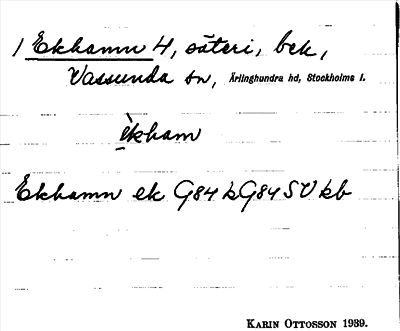 1 Ekhamn 4, säteri, bek,
Vassunda sn, Ärlinghundra hd, Stockholms l.
èkham
Ekhamn ek G84 k G84 SV kb
KARIN OTTOSSON 1939.